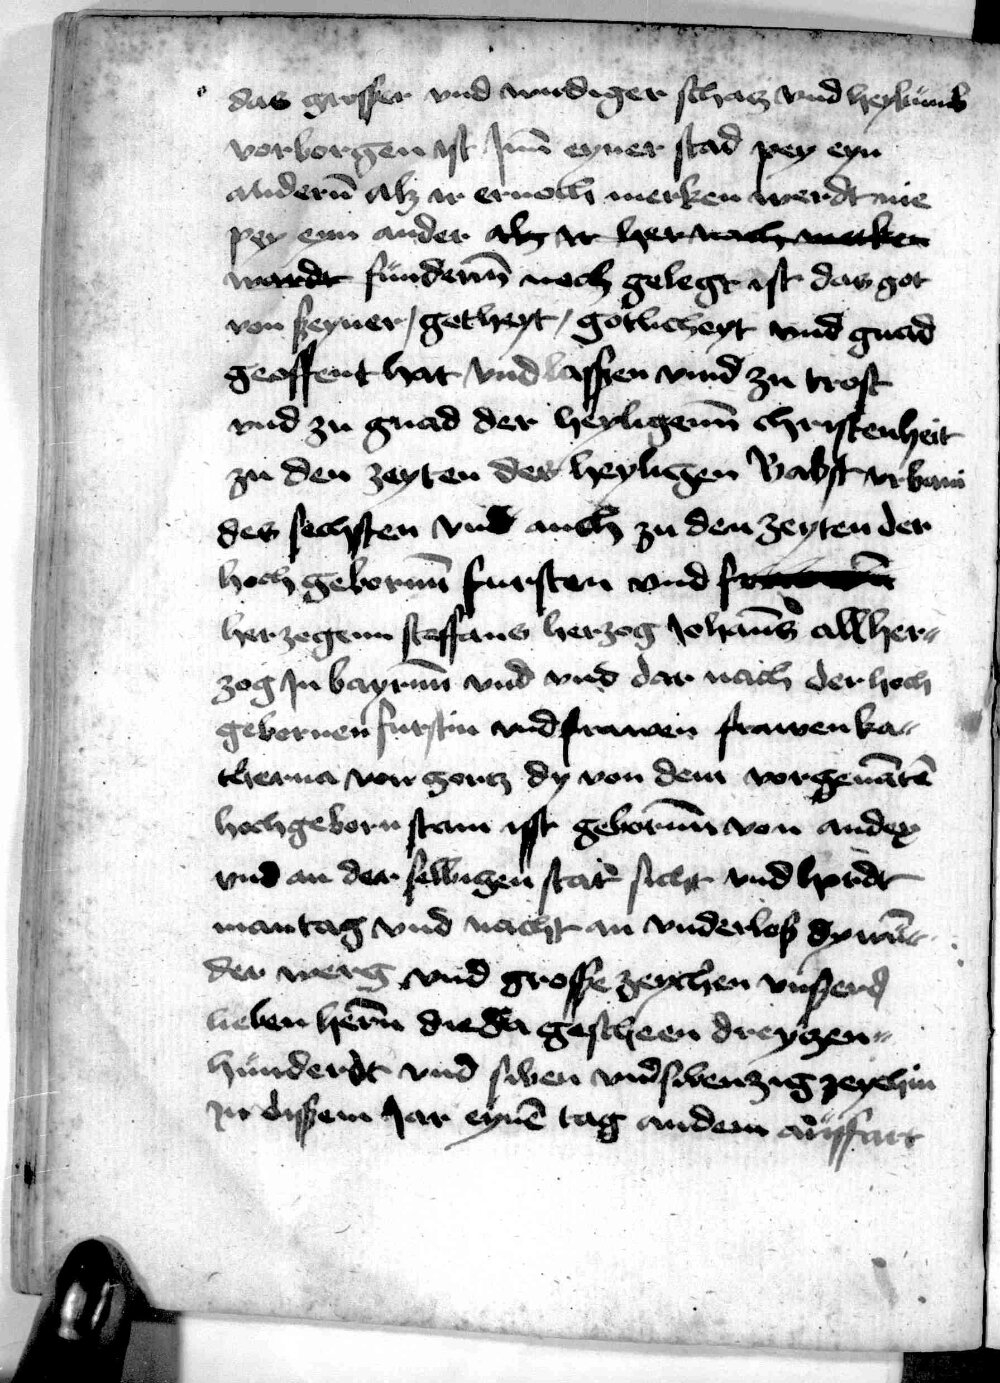 das grosser vnd wirdiger schatz vnd heyltumb
vorborgen ist Jnn eyner stad pey eyn
andernn alz ir ernoch merken werdt nie
pey eyn ander alz ir her nach merken
werdt fündenn noch gelegt ist das got
von seyner / gotheyt / gotlicheyt vnd gnad
geoffent hat vnd lassen vind zu trost
vnd zu gnad der heyligenn christenheit
zu den zeyten des heyligen Babst vrbani
des sechsten vnd auch zu den zeyten der
hoch gebornn fursten vnd
herzogenn steffans herzog Johanns all her-
zog Jn bayrnn vnd vnd dar nach der hoch
gebornen furstin vnd frawen frawen ka-
therina von gortz dy von dem vorgenāten
hochgeborn stam ist gebornn von andex
vnd an der selbigen stat sicht vnd hordt
man tag vnd nacht an vnderlos dy wun-
der werg vnd grosse zeychen vnsers
lieben hern die da gescheen dreyzen-
hünderdt vnd siben vnd sibenzig zeychin
in dissem Jar eynē tag an dem auffart